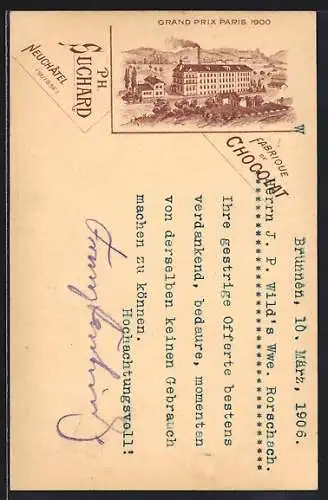 GRAND PRIX PARIS 1900
PH
SUCHARD
NEUCHÂTEL
(SUISSE)
FABRIQUE
DE
CHOCOLAT
W
Brunnen, 10. März, 1906.
Herrn J. P. Wild's Wwe. Rorschach.
Ihre gestrige Offerte bestens
verdankend, bedaure, momentan
von derselben keinen Gebrauch
machen zu können.
Hochachtungsvoll: